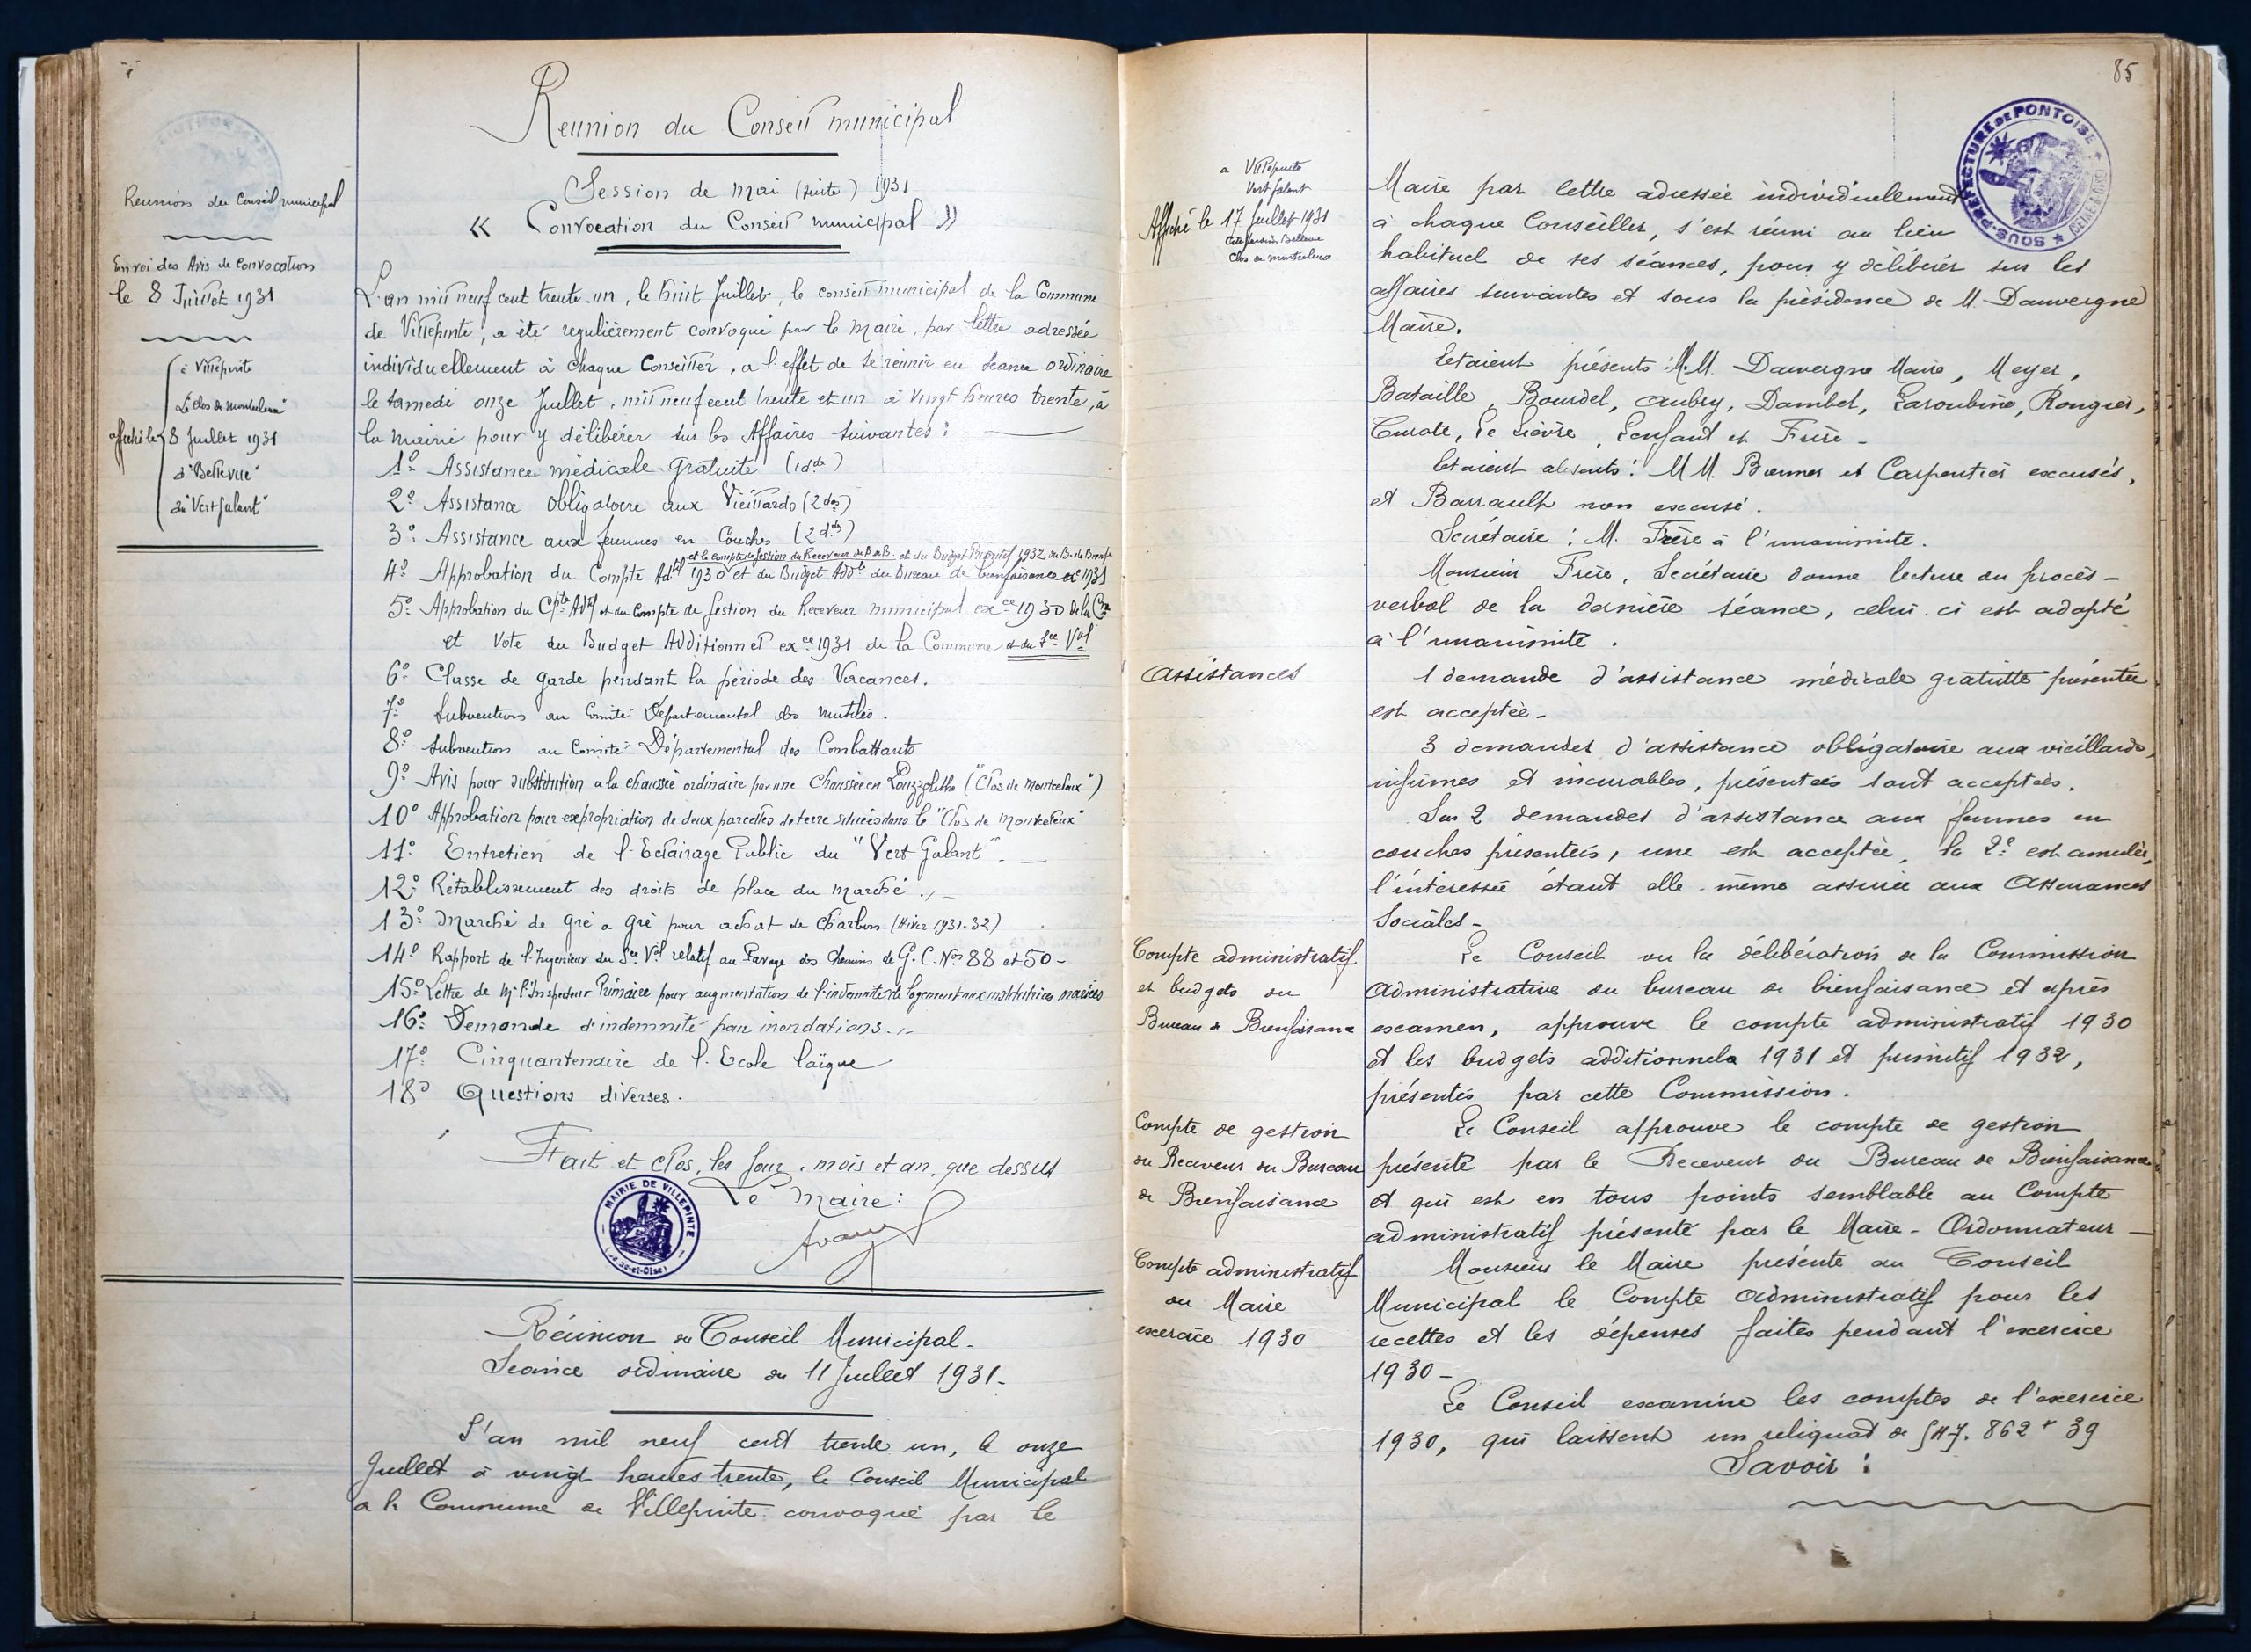 Reunion du Conseil municipal
Envoi des Avis de Convocation
le 8 Juillet 1931
affiché le
à Villepinte
"Le Clos de Montceleux"
8 Juillet 1931
à "Bellevue"
au "Vert Galant"
Reunion du Conseil municipal
Session de Mai (suite) 1931
« Convocation du Conseil municipal »
L'an mil neuf cent trente-un, le huit Juillet, le conseil municipal de la Commune
de Villepinte, a été regulièrement convoqué par le Maire, par lettre adressée
individuellement à chaque Conseiller, a l'effet de se réunir en seance ordinaire
le samedi onze Juillet, mil neuf cent trente et un à vingt heures trente, à
la mairie pour y délibérer sur les Affaires suivantes :
1° Assistance médicale Gratuite (1 dde)
2° Assistance obligatoire aux Vieillards (2 des)
3° Assistance aux femmes en Couches (2 des)
et le compte de Gestion du Receveur du B de B. et du Budget Primitif 1932 du B. de Bienf.
4° Approbation du Compte Adtif 1930 et du Budget Addel du Bureau de bienfaisance ex 1931
5° Approbation du Cpte Adtif et du Compte de Gestion du Receveur municipal exce 1930 de la Cne
et Vote du Budget Additionnel exce 1931 de la Commune et du Sce Val
6° Classe de garde pendant la période des Vacances.
7° Subvention au Comité Départemental des Mutilés.
8° Subvention au Comité Départemental des Combattants
9° Avis pour substitution a la chaussée ordinaire par une Chaussée en Pouzzolith ("Clos de Montceleux")
10° Approbation pour expropriation de deux parcelles de terre situées dans le "Clos de Montceleux"
11° Entretien de l'Eclairage Public du "Vert Galant".
12° Rétablissement des droits de place du marché.
13° Marché de gré a gré pour achat de Charbon (Hiver 1931-32)
14° Rapport de l'Ingenieur du Sce Val relatif au Pavage des Chemins de G.C. Nos 88 et 50-
15° Lettre de Mr l'Inspecteur Primaire pour augmentation de l'indemnité de logement aux institutrices mariées
16° Demande d'indemnité par inondations.
17° Cinquantenaire de l'Ecole laïque
18° Questions diverses.
Fait et clos, les Jour, mois et an, que dessus
Le Maire :
MAIRIE DE VILLEPINTE
(Se-et-Oise)
Réunion du Conseil Municipal.
Séance ordinaire du 11 Juillet 1931.
L'an mil neuf cent trente un, le onze
Juillet à vingt heures trente, le Conseil Municipal
de la Commune de Villepinte convoqué par le
85
SOUS-PRÉFECTURE DE PONTOISE
SEINE & OISE
a Villepinte
Vert galant
Affiché le 17 Juillet 1931
Clos de montceleux
Maire par lettre adressée individuellement
à chaque Conseiller, s'est réuni au lieu
habituel de ses séances, pour y délibérer sur les
affaires suivantes et sous la présidence de M. Dauvergne
Maire.
Etaient présents : M.M. Dauvergne Maire, Meyer,
Bataille, Bourdel, Aubry, Dambel, Laroubine, Rougier,
Curate, Le Lièvre, Lenfant et Frère.
Etaient absents : M M. Boemer et Carpentier excusés,
et Barrault non excusé.
Secrétaire : M. Frère à l'unanimité.
Monsieur Frère, Secrétaire donne lecture du procès-
verbal de la dernière séance, celui-ci est adopté
à l'unanimité.
Assistances
1 demande d'assistance médicale gratuite présentée
est acceptée.
3 demandes d'assistance obligatoire aux vieillards,
infirmes et incurables, présentées sont acceptées.
Sur 2 demandes d'assistance aux femmes en
couches présentées, une est acceptée, la 2e est annulée,
l'intéressée étant elle-même assurée aux Assurances
Sociales-
Compte administratif
et budgets du
Bureau de Bienfaisance
Le Conseil vu la délibération de la Commission
Administrative du bureau de bienfaisance et après
examen, approuve le compte administratif 1930
et les budgets additionnels 1931 et primitif 1932,
présentés par cette Commission.
Compte de gestion
du Receveur du Bureau
de Bienfaisance
Le Conseil approuve le compte de gestion
présenté par le Receveur du Bureau de Bienfaisance
et qui est en tous points semblable au Compte
administratif présenté par le Maire-Ordonnateur-
Compte administratif
du Maire
exercice 1930
Monsieur le Maire présente au Conseil
Municipal le Compte Administratif pour les
recettes et les dépenses faites pendant l'exercice
1930-
Le Conseil examine les comptes de l'exercice
1930, qui laissent un reliquat de 862 39
Savoir :